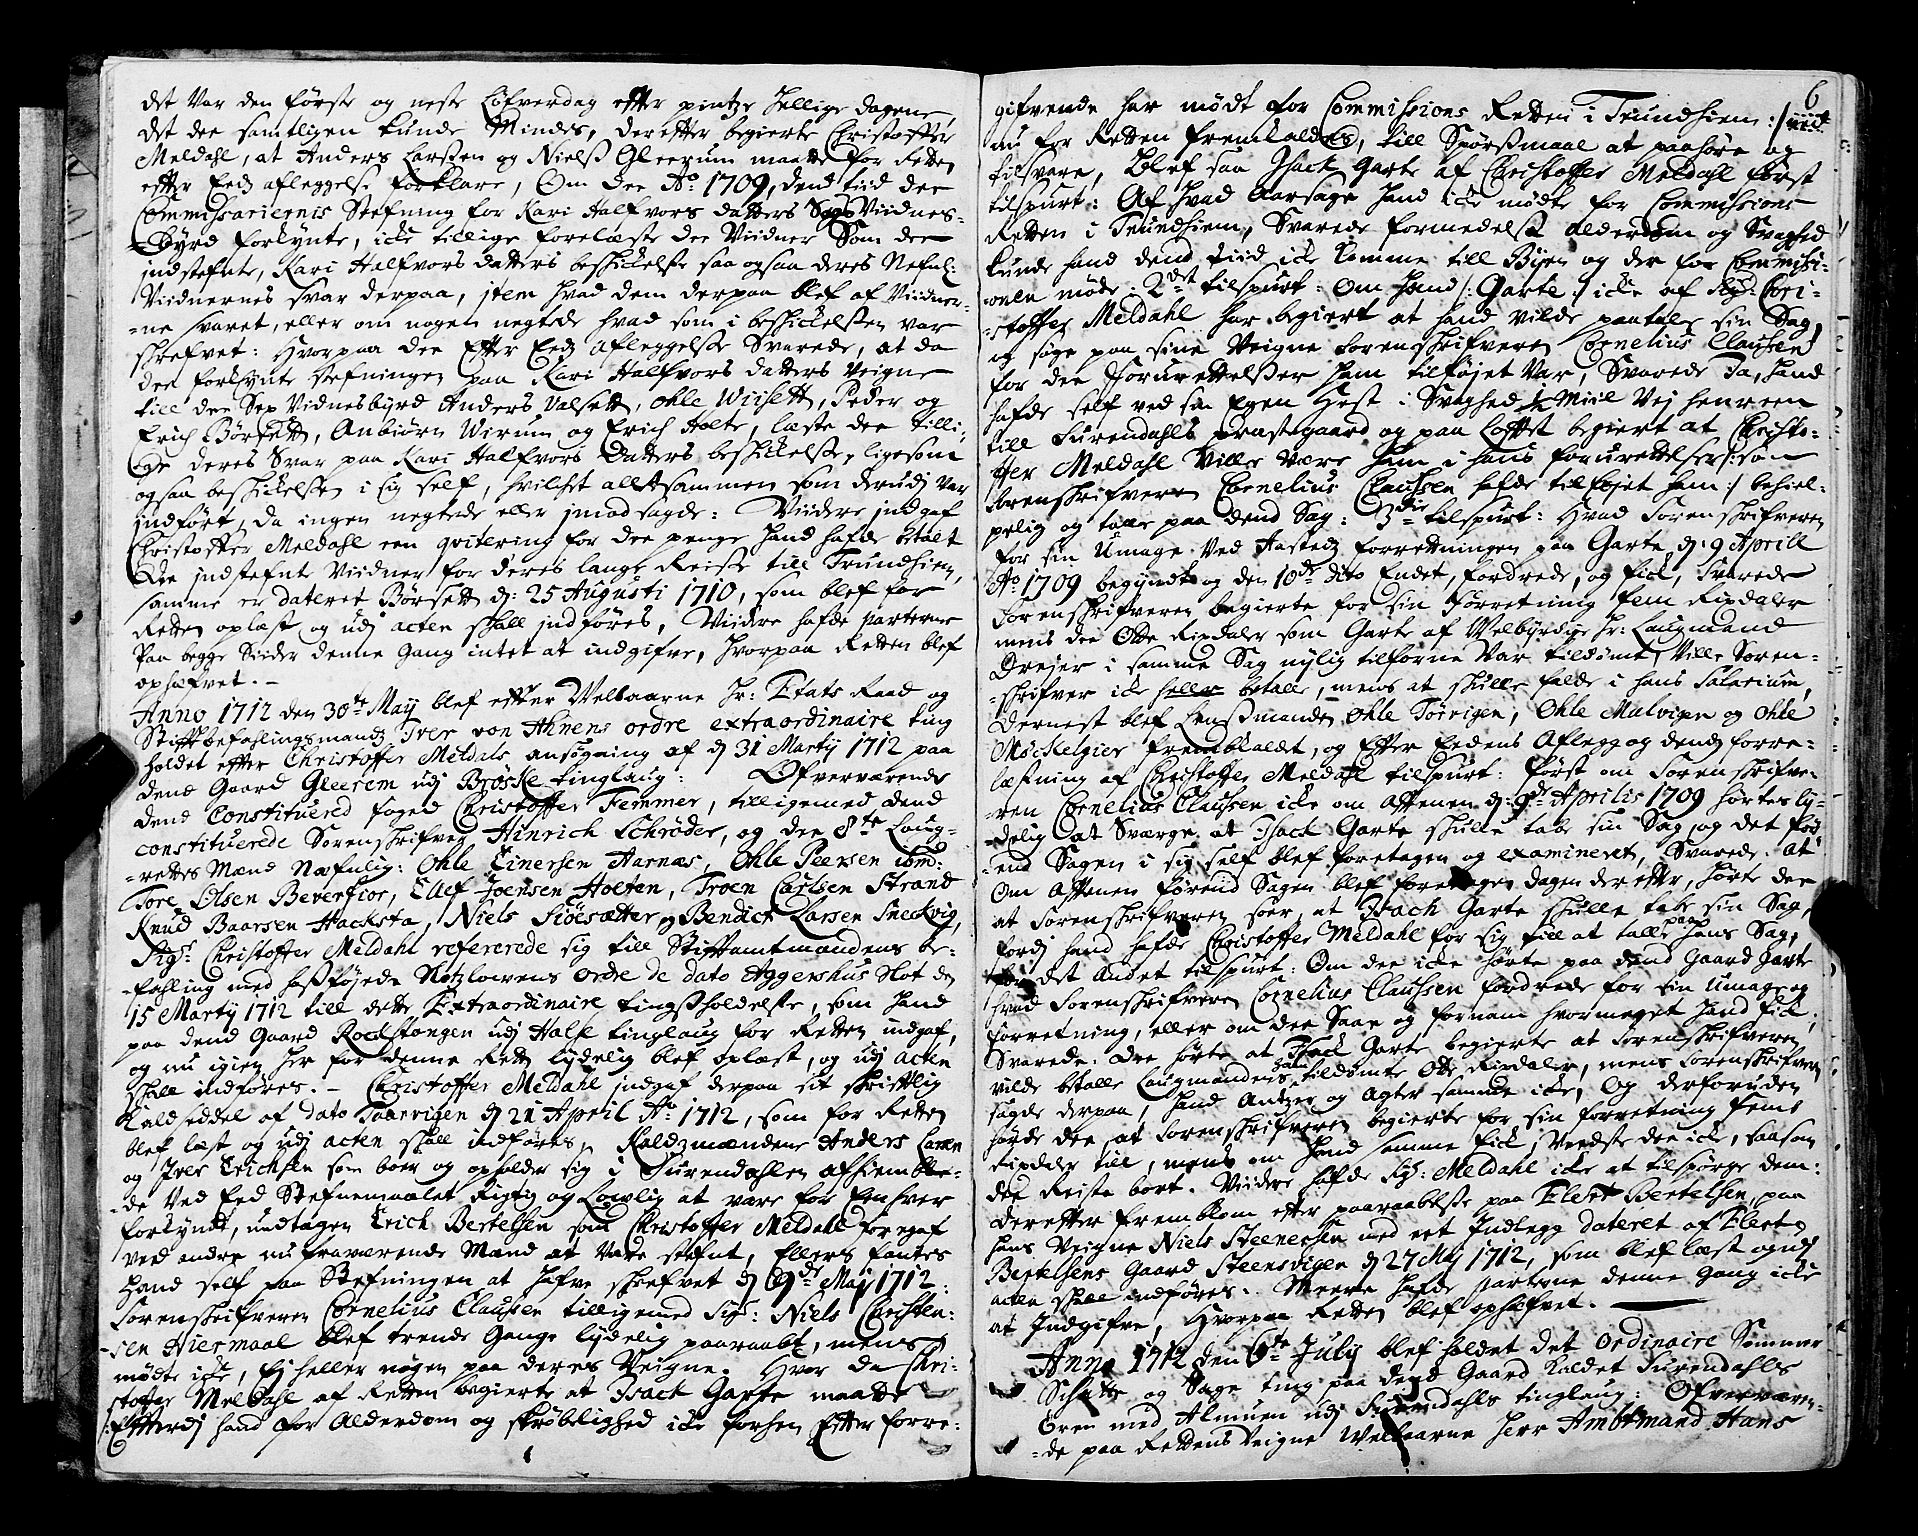 det var den første og neste Løfverdag efter pintze hellige dagene,
det dee samtligen kunde Mindes, deretter begierte Christoffer
Meldahl, at Anders Larssen og Nielss Gleerum maatte for Retten
efter Eedz afleggelse forklare, Om dee Ao. 1709, dend tiid dee
Commissariernis Stefning for Kari Halfvors datters Sags Viidnes-
byrd forkynte, icke tillige forelæste dee Viidner Som dee
indstefnte, Kari Halfvors datters beskickelse saa ogsaa deres Nefnl:
Viidnernes svar derpaa, item hvad dem derpaa blef af Viidner-
-ne svaret, eller om nogen negtede hvad som i beskickelsen var
skrefvet: Hvorpaa dee Efter Eedz afleggelse Svarede, at da
dee forkynte stefningen paa Kari Halfvors datters Veigne
till dee Sex Vidnesbyrd Anders Valsett, Ohle Wiisett, Peder og
Erich Børsett, Anbiørn Wirum og Erich Holte, læste dee tilli-
ge deres Svar paa Kari Halfvors Datters beskickelse, ligesom
ogsaa beskickelsen i sig self, hvilchet altsammen som derudj var
indført, da ingen negtede eller imodsagde: Viidere indgaf
Christoffer Meldahl een qvitering for dee penge hand hafde betalt
Dee indstefnte Viidner for deres lange Reise till Trundhiem,
samme er dateret Børsett d: 25 Augusti 1710, som blef for
Retten oplæst og udj acten skall indføres, Viidere hafde parterne
Paa begge Siider denne Gang intet at indgifve, hvorpaa Retten blef
ophæfvet. -
Anno 1712 den 30te May blef efter Velbaarne Hr: Etats Raad og
Stiftsbefahlingsmandz Iver von Ahnens ordre extraordinaire ting
holdet efter Christoffer Meldals ansøgning af d 31 Marty 1712 paa
dend Gaard Gleerem udj Brøske tinglaug: Ofververende
dend Constituered foged Christoffer Femmer, tilligemed dend
constituerede Sorenskrifver Hinrich Schrøder, og dee 8te Laug-
-rettes Mænd Næfnlig: Ohle Einersen Aarnæs, Ohle Peersen ibm:
Tore Olsen Beverfior, Ellef Joensen Holten, Troen Carlsen Strand
Knud Baarsen Hacksta, Niels Siøesætter, og Bendict Larsen Sneckvig,
Sigr. Christoffer Meldahl refererede sig till Stiftamtmandens be-
-fahling med hosføyede Slotzlowens ordre de dato Aggershus Slot den
15 Marty 1712 till dette Extraordinaire tingssholdelse, som hand
paa dend Gaard Rodstongen udj Halse tinglaug for Retten indgaf,
og nu igien her for denne Rett lydelig blef oplæst, og udj acten
skall indføres. - Christoffer Meldahl indgaf derpaa sit skriftlig
Kaldseddel af dato Taarvigen d 21 April Ao. 1712, som for Retten
blef læst og udj acten skall indføres, Kaldzmændene Anders Larsen
og Iver Erichsen som boer og opholder sig i Surendahlen afhiemble-
de Ved Eed Stefnemaalet Rigtig og Lowlig at være for Enhver
forkyndt, undtagen Erich Bertelsen som Christoffer Meldahl foregaf
ved andre nu fraværende Mænd at Være stefnt, Ellers fantes
hand self paa Stefningen at hafve skrefvet d 9de Maj 1712:
Sorenskrifveren Cornelius Clausen tilligemed Sigr: Niels Christen-
sen Hiermaal blef trende Gange lydelig paaraabt, mens
mødte icke, Ej heller nogen paa deres Veigne. Hvor da Chri-
stoffer Meldahl af Retten begierte at Isack Garte maatte
/: Efterdj hand for Alderdom og skrøbelighed icke forhen Efter forre-
6
gifvende har mødt for Commissions Retten i Trundhiem :/
nu for Retten fremkaldes, till Spørssmaal at paahøre og
tilsvare, Blef saa Isack Garte af Christoffer Meldahl først
tilspurt: Af hvad Aarsage hand icke mødte for Commissions
Retten i Trundhiem, Svarede formedelst alderdom og Svaghed
kunde hand dend tiid icke komme till Byen og der for Commisi-
onen møde: 2det tilspurt: Om hand /: Garte :/ icke af Sigr: Chri-
-stoffer Meldahl har begiert at hand vilde paatale sin Sag,
og søge paa sine Veigne Sorenskrifveren Cornelius Clausen
for dee ForuretteIser ham tilføjet Var, Svarede Ja, hand
hafde self ved sin Egen Hest i Svaghed ½ Miil Vej henreen
till Surendahls præstegaard og paa Loftet begiert at Christo-
ffer Meldahl Ville Være ham i hans forurettelser /: som
Sorenskrifveren Cornelius Claussen hafde tilføjet ham :/ behiel-
pelig og talle paa dend Sag: 3die tilspurt: Hvad Sorenskrifveren
for sin Umage Ved Aastedz forretningen paa Garte, d: 9 Aprill
Ao. 1709 begyndt og den 10de dito Endet, fordrede, og fick, Svarede
Sorenskrifveren begierte for sin forretning fem Rixdaler
mens dee Otte Rixdaler som Garte af Velbyrdige Hr: Laugmand
Drejer i samme Sag nylig tilforne Var tildømt, Ville Soren-
-skrifver icke heller betalle, mens at skulle falde i hans Salarium,
Dernest blef Lenssmanden Ohle Tørrigen, Ohle Malvigen og Ohle
Møckelgier frembkaldet, og Efter Eedens Aflegg og dendz forre-
læssning af Christoffer Meldahl tilspurt: Først om Sorenskrifve-
ren Cornelius Clausen icke om Aftenen d: 9de Aprilis 1709 hørtes ly-
delig at Sværge at Isack Garte skulle tabe sin Sag, og det før-
end Sagen i sig self blef foretagen og examineret, Svarede: at
Om Aftenen førend Sagen blef foretagen dagen der efter, hørte dee
at Sorenskrifveren soer, at Isach Garte skulle tabe sin Sag,
fordj hand hafde Christoffer Meldahl for sig till at talle paa hans Sag,
for det Andet tilspurt: Om dee icke hørte paa dend Gaard Garte
hvad Sorenskrifveren Cornelius Claussen fordrede for sin Umage og
forretning, eller om dee Saae og fornam hvormeget hand fick,
Svarede: dee hørte at Isach Garte begierte at Sorenskrifveren
vilde betalle Laugmandens ham tildømte Otte Rixdaler, mens Sorenskrifveren
sagde derpaa, hand Antzer og Agter samme icke, Og derforuden
hørde dee at Sorenskrifveren begierte for sin forretning Fem
Rixdaler till, mens om hand samme fick, Veedste dee icke, saasom
dee Reiste bort. Viidere hafde Sigr: Meldahl icke at tilspørge dem:
Derefter frembkom efter paaraabelse paa Elert Bertelsen, paa
hans Veigne Niels Steenersen med eet Indlegg dateret af Elert
Bertelsens Gaard Steensvigen d 27 Maj 1712, som blef læst og udj
acten skall indføres. Meere hafde parterne denne Gang icke
at Indgifve, Hvorpaa Retten blef ophæfvet.
Anno 1712 den 6te July blef holdet det Ordinaire Sommer
Schatte og Sage ting paa dend Gaard Kaldet Surendahls
Øren med Almuen udj Surendahls tinglaug: Ofverværen-
-de paa Rettens Veigne Welbaarne Herr Ambtmand Hans